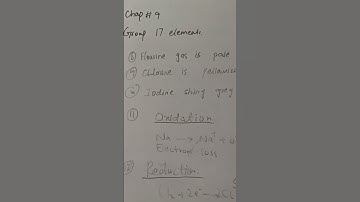 Chap # 9
Group 17 element
Flourine gas is pale
Chlorine is Yellowish
Iodine shiny grey
Oxidation
Na → Na⁺ +
Electron loss
Reduction: